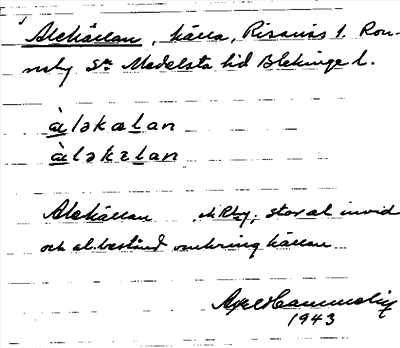 Alekällan, källa, Risanäs 1. Ron-
neby sn Medelsta hd Blekinge l.
àləkælan
àləkælan
Alekällan stor al invid
och al.bestånd omkring källan
Axel
1943